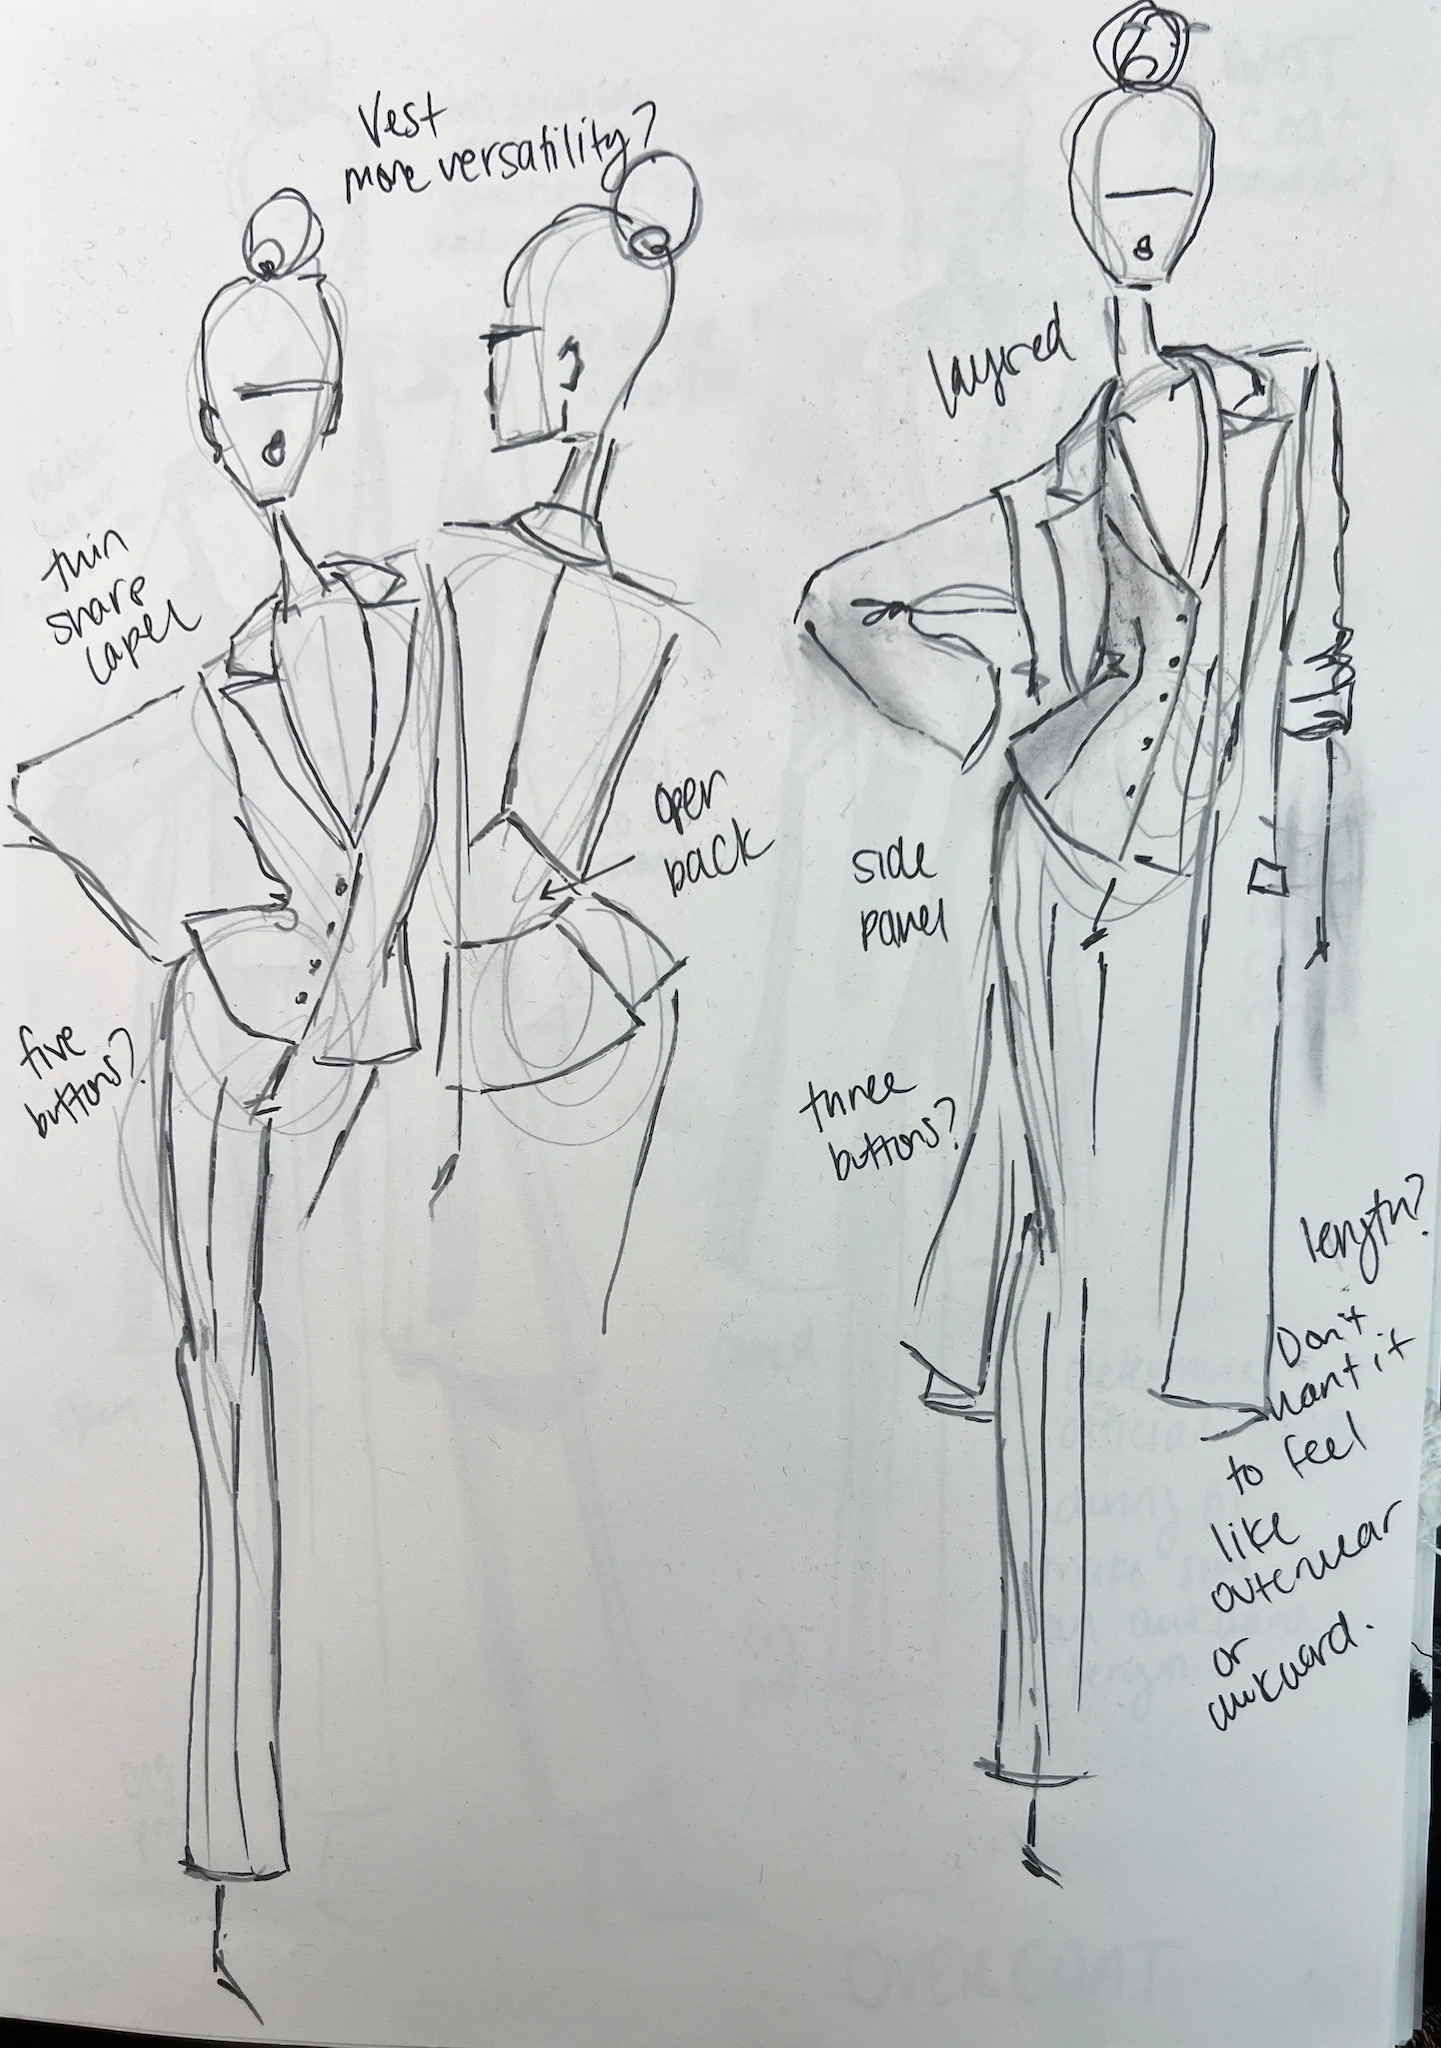 Vest
more versatility?
thin
share
lapel
open
back
five
buttons?
layered
side
panel
three
buttons?
length?
Don't
want it
to feel
like
outerwear
or
awkward.
OVERCOAT